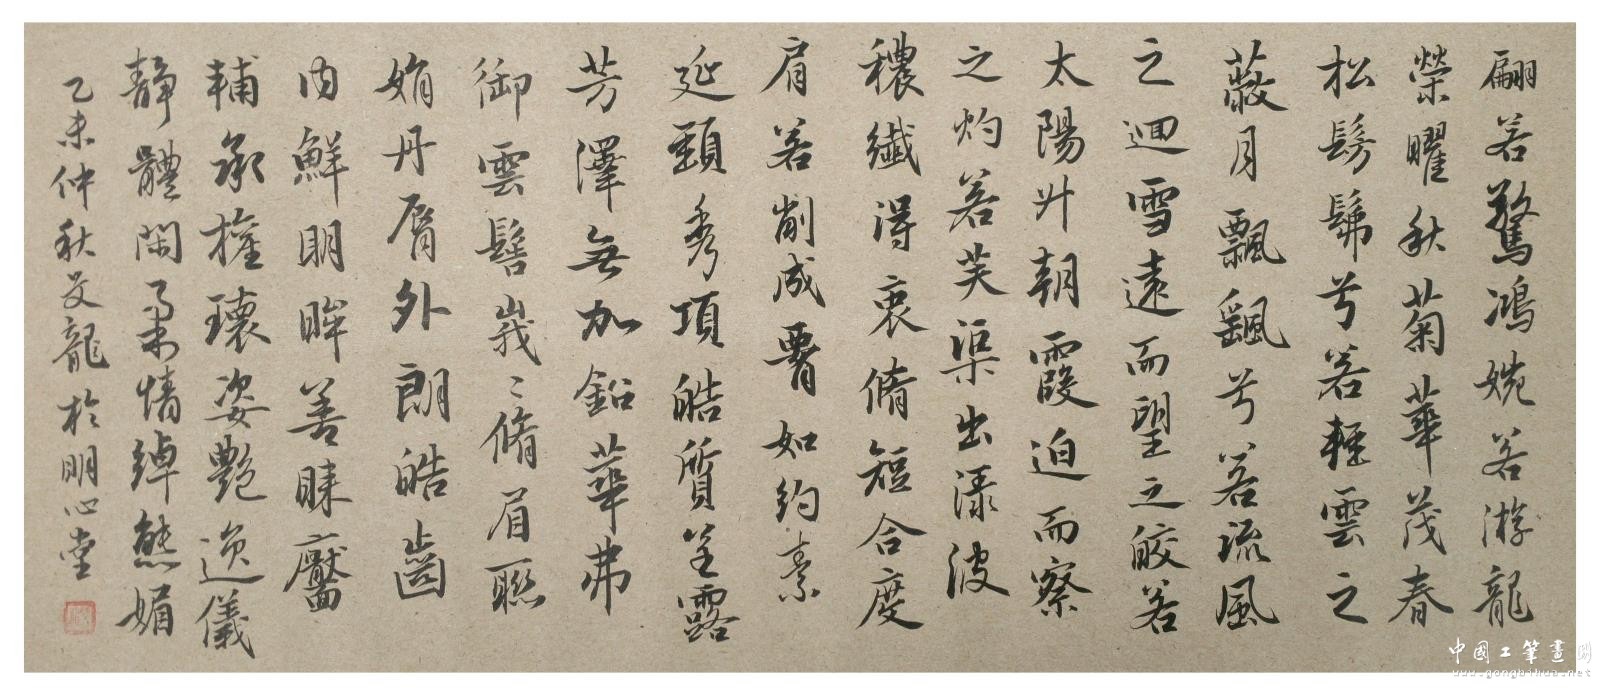 翩若驚鴻婉若游龍
榮曜秋菊華茂春
松髣髴兮若輕雲之
蔽月飄颻兮若流風
之迴雪遠而望之皎若
太陽升朝霞迫而察
之灼若芙渠出渌波
穠纖得衷脩短合度
肩若削成腰如約素
延頸秀項皓質呈露
芳澤無加鉛華弗
御雲髻峩〻脩眉聯
娟丹脣外朗皓齒
内鮮明眸善睞靨
輔承權瓌姿艷逸儀
靜體閑柔情綽態媚
乙未仲秋艾龍於明心堂
中國工筆畫網
www.gongbihua.net